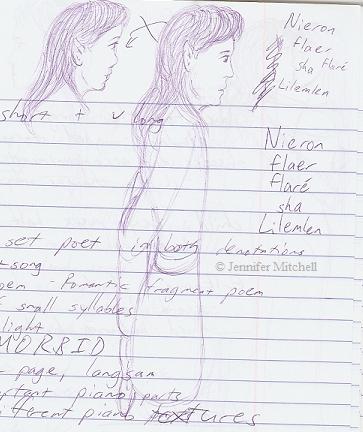 Nieron
flaer
sha flaré
Lilemlen
short + v long
Nieron
flaer
flaré
sha
Lilemlen
set poet in both denotations
-song
© Jennifer Mitchell
oem - Romantic fragment poem
small syllables
light
MORBID
page, langsam
piano parts
ifferent piano textures